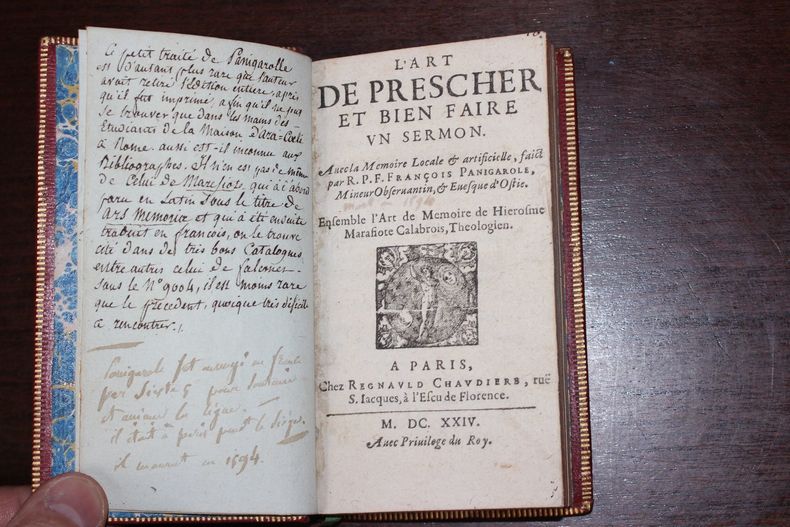 Ce petit traité de Panigarolle
est d'autant plus rare que l'auteur
avoit retiré l'édition entiere, après
qu'il fut imprimé, afin qu'il ne put
se trouver que dans les mains des
Etudiants de la Maison d'Ara=Cœli
à Rome. aussi est-il inconnu aux
Bibliographes. Il n'en est pas de même
de celui de Marafiote, qui a d'abord
paru en Latin sous le titre de
Ars Memoriæ et qui a été ensuite
traduit en françois, on le trouve
cité dans des très bons Catalogues
entre autres celui de falconet
sous le N° 9004, il est moins rare
que le précédent, quoique très difficile
a rencontrer.
Panigarole fut envoyé en france
par Sixte 5 pour soutenir
et animer la ligue.
il était à paris pendt le siège.
il mourut en 1594.
L'ART
DE PRESCHER
ET BIEN FAIRE
VN SERMON.
Auec la Memoire Locale & artificielle, faict
par R. P. F. FRANÇOIS PANIGAROLE,
Mineur Obseruantin, & Euesque d'Ostie.
Ensemble l'Art de Memoire de Hierosme
Marafiote Calabrois, Theologien.
A PARIS,
Chez REGNAVLD CHAVDIERE, ruë
S. Iacques, à l'Escu de Florence.
M. DC. XXIV.
Auec Priuilege du Roy.